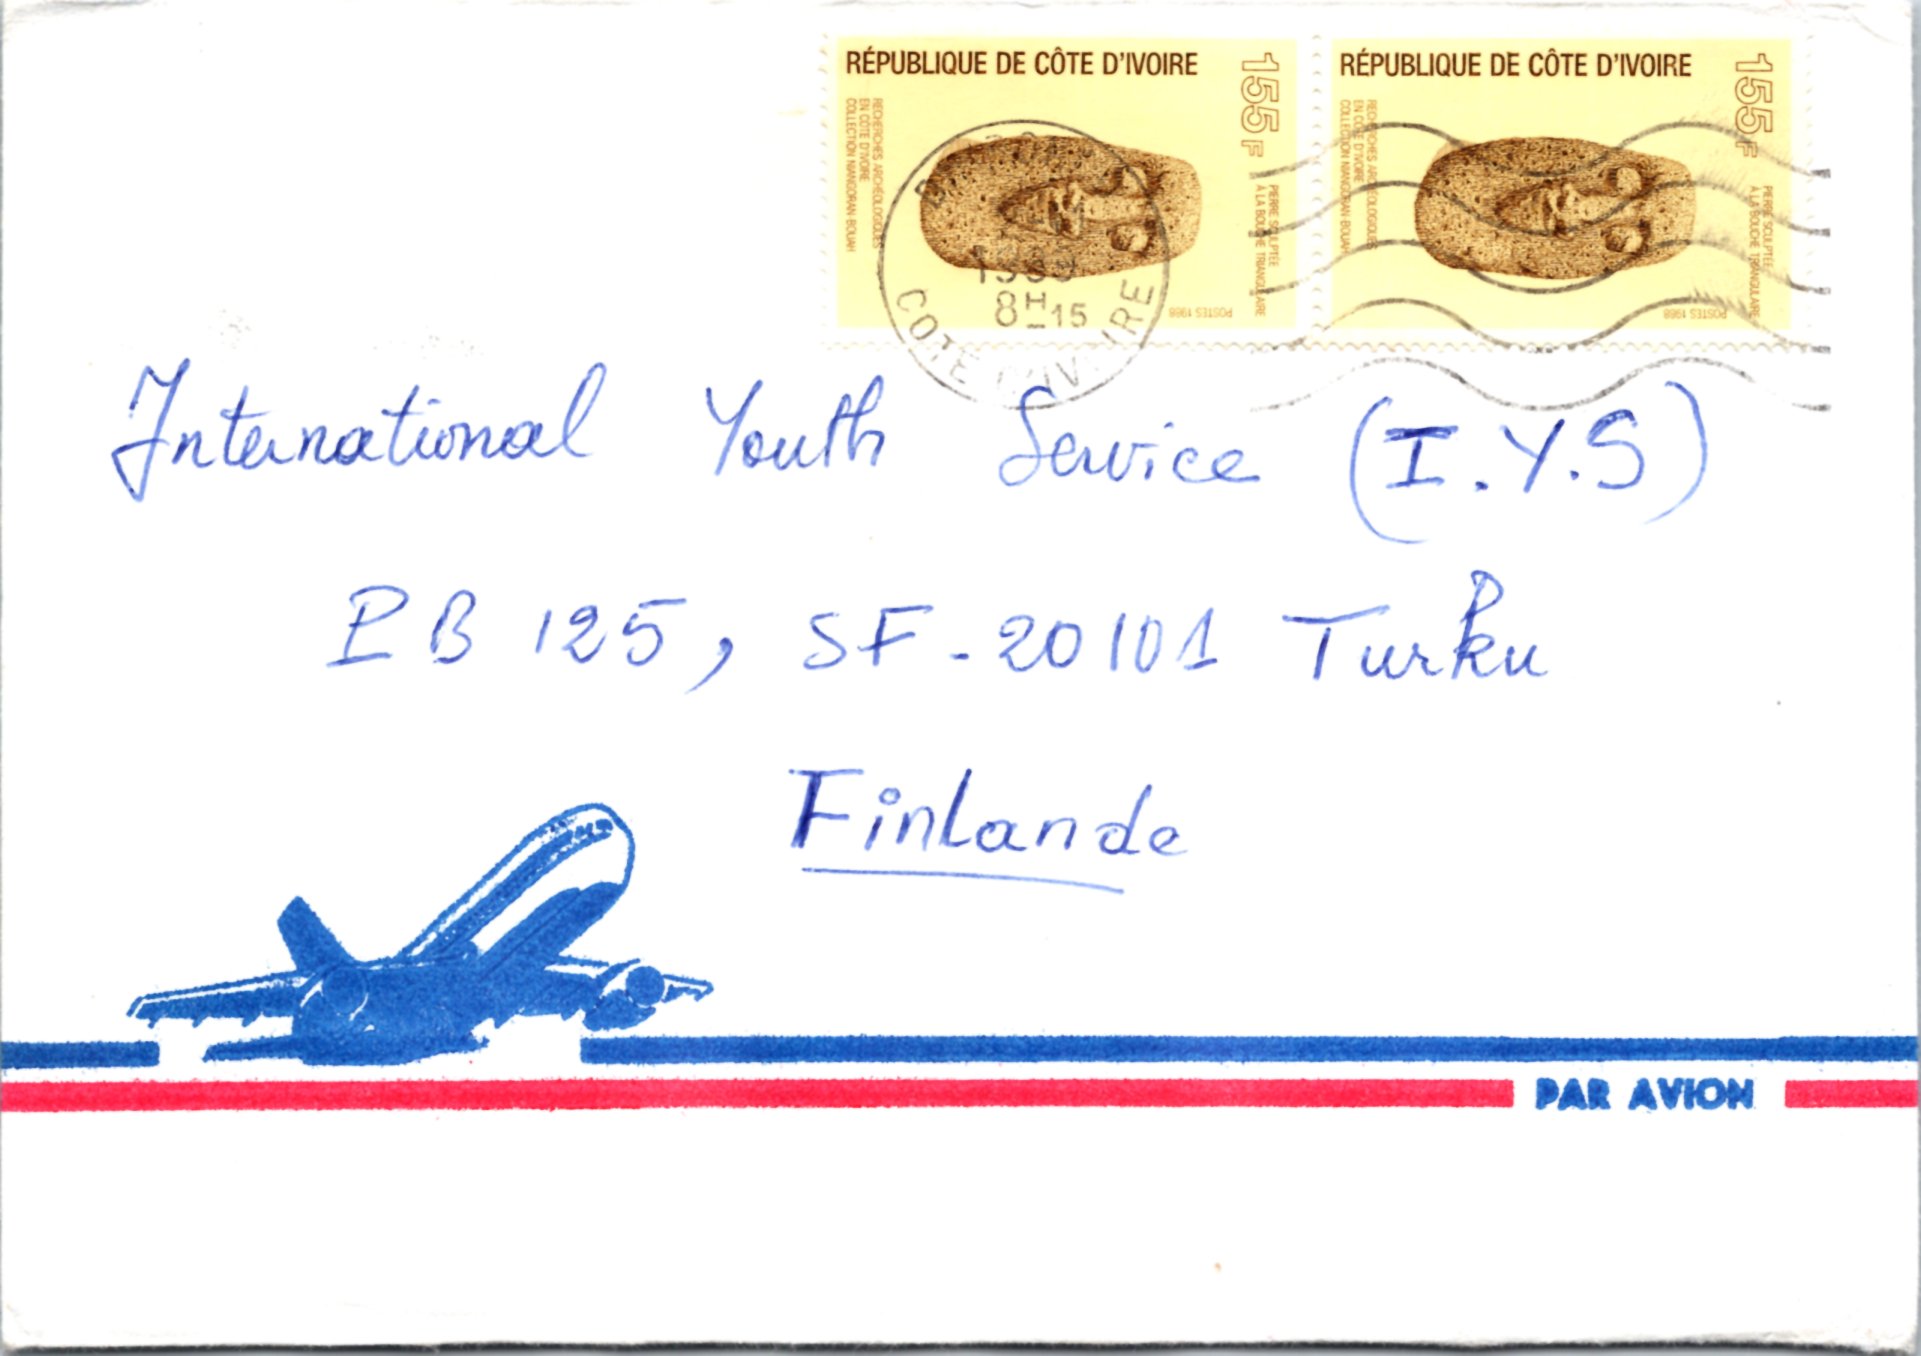 RÉPUBLIQUE DE CÔTE D'IVOIRE
155F
RECHERCHES ARCHÉOLOGIQUES
EN CÔTE D'IVOIRE
COLLECTION NIANGORAN-BOUAH
PIERRE SCULPTÉE
À LA BOUCHE TRIANGULAIRE
POSTES 1988
RÉPUBLIQUE DE CÔTE D'IVOIRE
155F
RECHERCHES ARCHÉOLOGIQUES
EN CÔTE D'IVOIRE
COLLECTION NIANGORAN-BOUAH
PIERRE SCULPTÉE
À LA BOUCHE TRIANGULAIRE
POSTES 1988
8H-15
COTE D'IVOIRE
International Youth Service (I.Y.S)
PB 125, SF-20101 Turku
Finlande
PAR AVION